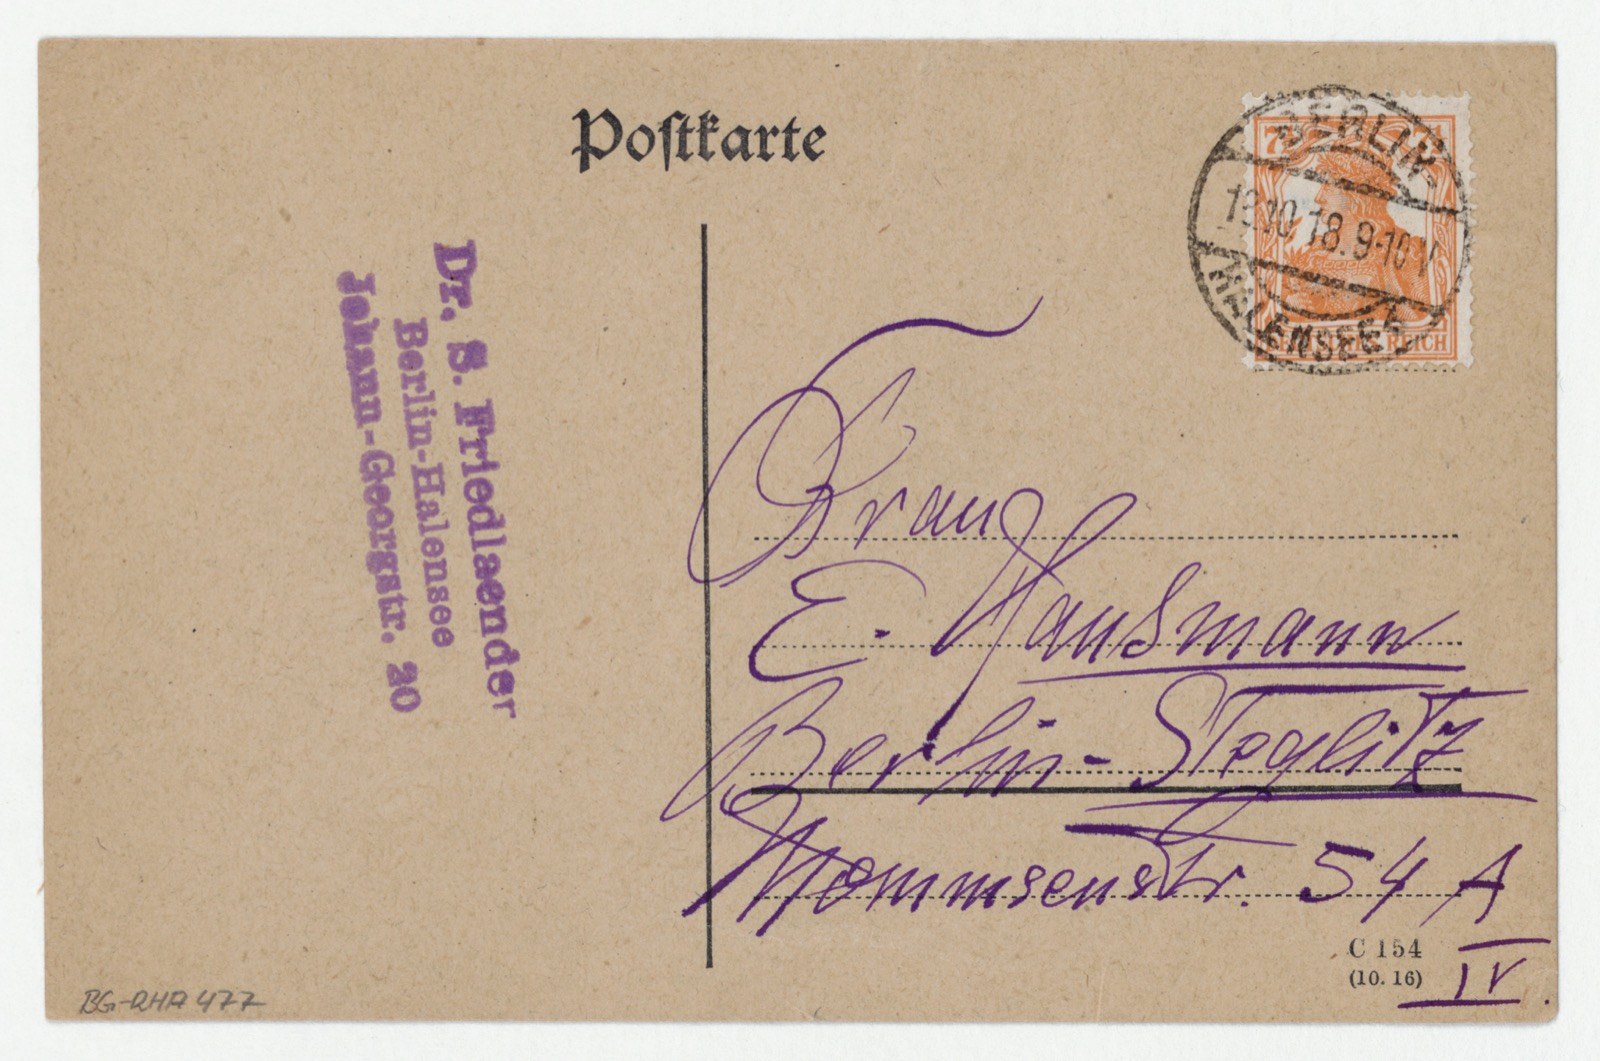 Postkarte
7½ 7½
BERLIN
10.18.9-10V
HALENSEE
DEUTSCHES REICH
Dr. S. Friedlaender
Berlin-Halensee
Johann-Georgstr. 20
Frau
E. Hausmann
Berlin-Steglitz
Mommsenstr. 54 A
IV.
C 154
(10. 16)
BG-RHA 477